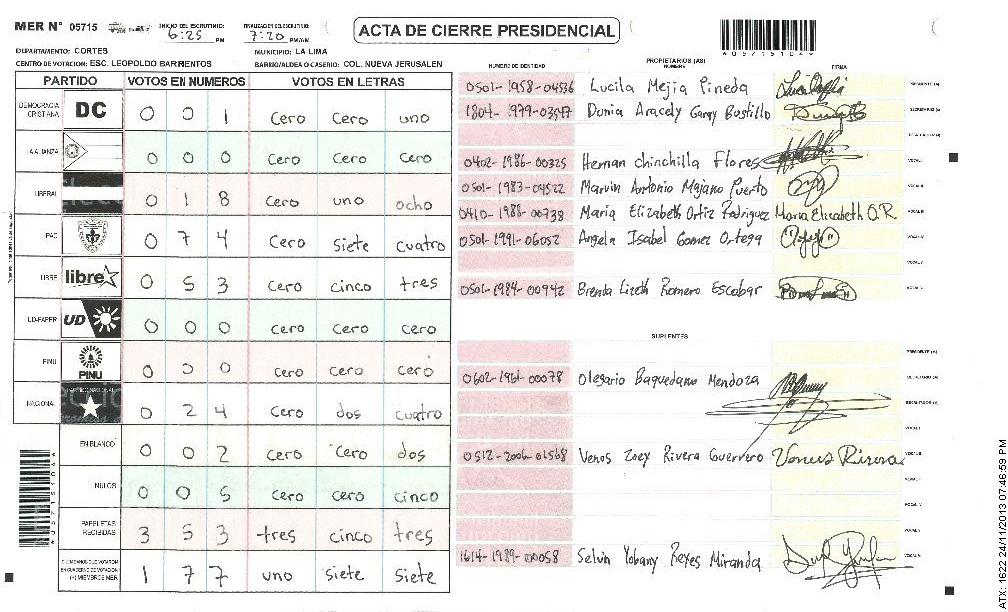 MER N° 05715
INICIO DEL ESCRUTINIO: 6:25 PM
FINALIZACION ESCRUTINIO: 7:20 PM/AM
ACTA DE CIERRE PRESIDENCIAL
DEPARTAMENTO: CORTES
MUNICIPIO: LA LIMA
CENTRO DE VOTACION: ESC. LEOPOLDO BARRIENTOS
BARRIO/ALDEA O CASERIO: COL. NUEVA JERUSALEN
PARTIDO VOTOS EN NUMEROS VOTOS EN LETRAS
DEMOCRACIA CRISTIANA DC 0 0 1 Cero Cero uno
LA ALIANZA 0 0 0 Cero Cero Cero
LIBERAL 0 1 8 Cero uno ocho
PAC 0 7 4 Cero siete cuatro
LIBRE libre 0 5 3 Cero cinco tres
UD-FAPER UD 0 0 0 Cero Cero Cero
PINU PINU 0 0 0 Cero Cero Cero
NACIONAL 0 2 4 Cero dos cuatro
EN BLANCO 0 0 2 Cero Cero dos
NULOS 0 0 5 Cero Cero cinco
PAPELETAS RECIBIDAS 3 5 3 tres cinco tres
CIUDADANOS QUE VOTARON EN CUADERNO DE VOTACION (+) MIEMBROS MER 1 7 7 uno siete siete
NUMERO DE IDENTIDAD PROPIETARIOS (AS) NOMBRE FIRMA
0501-1958-04536 Lucila Mejia Pineda PRESIDENTE (A)
1804-1979-03547 Dunia Aracely Garay Bostillo SECRETARIO (A)
ESCRUTADOR (A)
0402-1986-00325 Hernan Chinchilla Flores VOCAL I
0501-1983-04522 Marvin Antonio Majano Puerto VOCAL II
0410-1988-00738 María Elizabeth Ortiz Rodriguez Maria Elizabeth O.R. VOCAL III
0501-1991-06052 Angela Isabel Gomez Ortega VOCAL IV
VOCAL V
0501-1984-00942 Brenda Lizeth Romero Escobar
SUPLENTES
PRESIDENTE (A)
0602-1961-00078 Olegario Baquedano Mendoza SECRETARIO (A)
ESCRUTADOR (A)
VOCAL I
0512-2006-01568 Venos Zoey Rivera Guerrero Venus Rivera VOCAL II
1614-1989-00058 Selvin Yobany Reyes Miranda
ATX: 1622 24/11/2013 07:46:59 PM